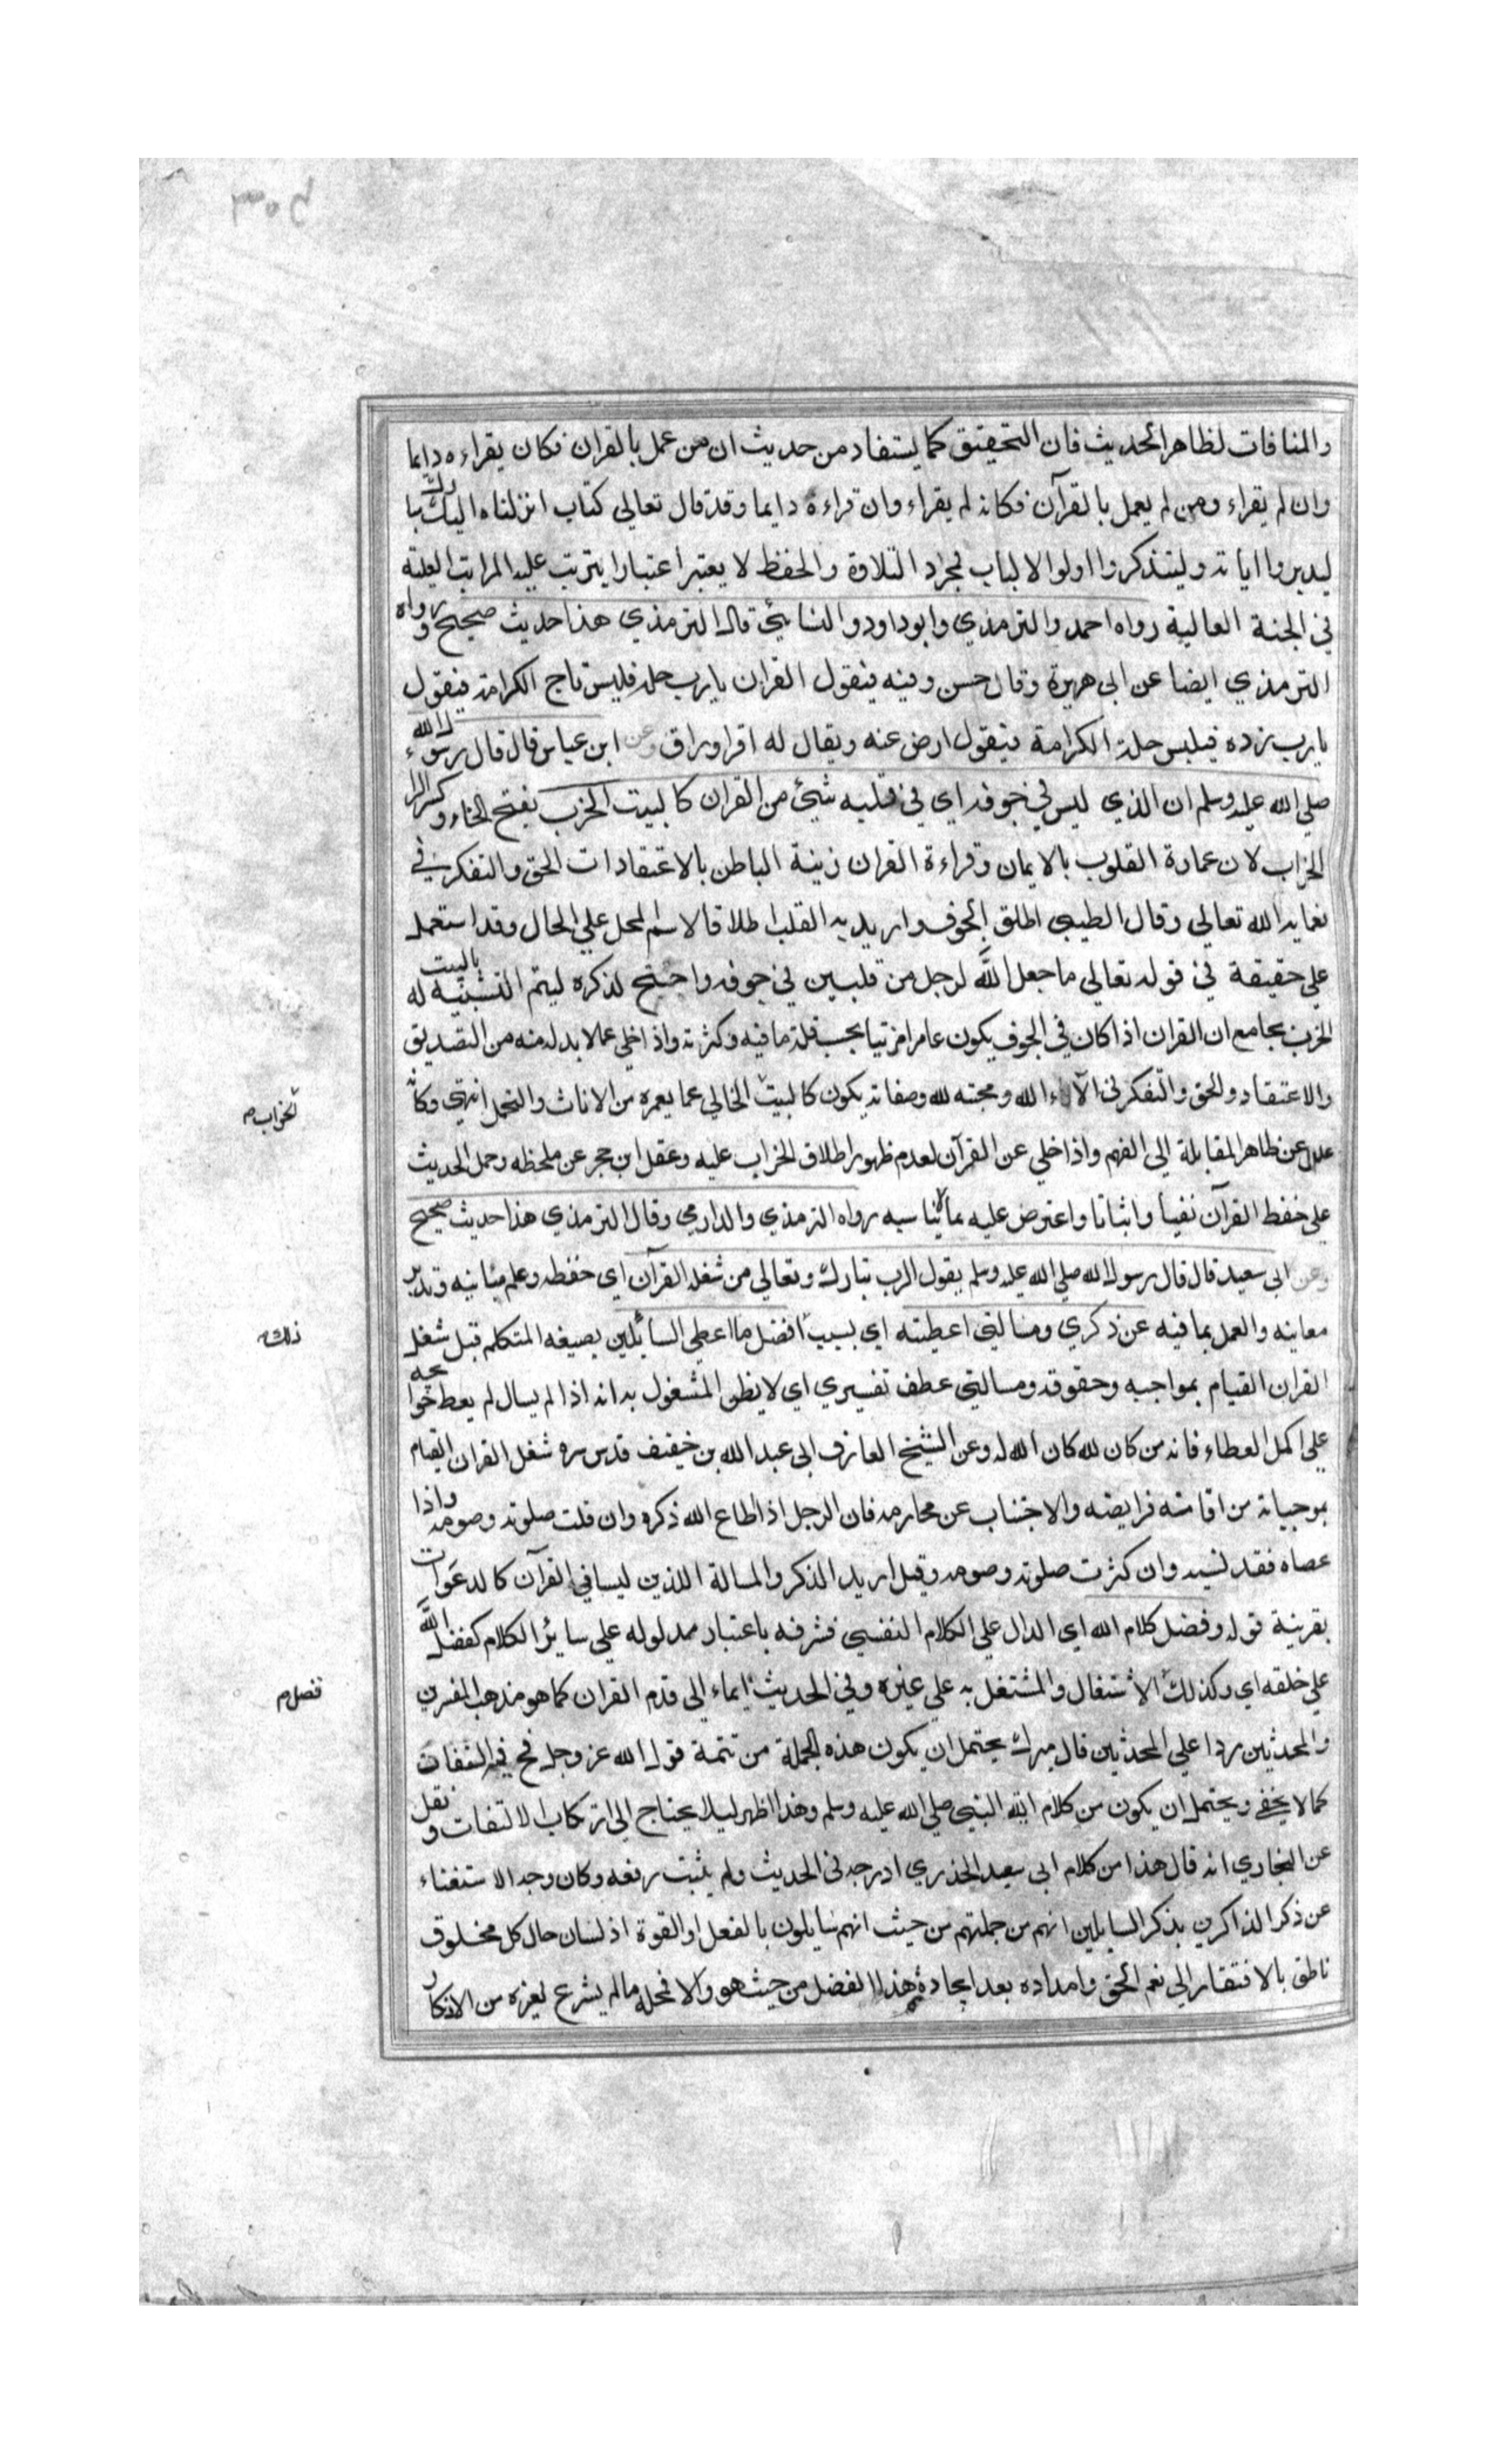 والمنافات لظاهر الحديث فان التحقيق كما يستفاد من حديث ان من عمل بالقران فكان يقراءه دايما
وان لم يقراء ومن لم يعمل بالقرآن فكانه لم يقراء وان قراءة دايما وقد قال تعالي كتاب انزلناه اليك مبارك
ليدبروا اياته وليتذكروا اولوا الالباب لمجراد التلاوة والحفظ لا يعتبر اعتبارا يترتب عليه المراتب العلية
في الجنة العالية رواه احمد والترمذي وابوداود والنسائي قال الترمذي هذا حديث صحيح ورواه
الترمذي ايضا عن ابي هريرة وقال حسن وفيه فيقول القران يا رب حله فليس تاج الكرامة فيقول
يا رب زده فيلبس حلة الكرامة فيقول ارض عنه ويقال له اقرا وراق وعن ابن عباس قال قال رسول الله
صلي الله عليه وسلم ان الذي ليس في جوفه اي في قلبه شئ من القران كالبيت الخرب بفتح الخاء وكسر الرا
الخراب لان عمارة القلوب بالايمان وقراءة القران زينة الباطن بالاعتقادات الحق والتفكر في
نعمايه الله تعالي وقال الطيبي اطلق الجوف واريد به القلب اطلاقا لاسم المحل علي الحال وقد استعمل
علي حقيقة في قوله تعالي ما جعل الله لرجل من قلبين في جوفه واحتيج لذكره ليتم التشبيه له بالبيت
الخرب بجامع ان القران اذا كان في الجوف يكون عامرا مزتيا بحسب قلة ما فيه وكثرته واذا خلي عما لابد له منه من التصديق
والاعتقاد والحق والتفكر في الآلاء الله ومحبته لله وصفاته يكون كالبيت الخالي عما يعمره من الاثاث والتجمل انتهي وكانه
عدل عن ظاهر المقابلة الي الفهم واذا خلي عن القرآن لعدم ظهور اطلاق الخراب عليه وغفل ابن حجر عن ملحظه وحمل الحديث
علي حفظ القرآن نفيا واثباتا واعترض عليه بما لا يناسبه رواه الترمذي والدارمي وقال الترمذي هذا حديث صحيح
وعن ابي سعيد قال قال رسول الله صلي الله عليه وسلم يقول الرب تبارك وتعالي من شغله القرآن اي حفظه وعلم مبانيه وتدبر
معانيه والعمل بما فيه عن ذكري ومسالتي اعطيته اي بسبب افضل ما اعطي السائلين بصيغه المتكلم قيل شغل
القران القيام بمواجبه وحقوقه ومسالتي عطف تفسيري اي لا يظن المشغول به انه اذا لم يسال لم يعط حوايجه
علي اكمل العطاء فانه من كان لله كان الله له وعن الشيخ العارف ابي عبد الله بن خفيف قدس سره شغل القران القيام
بموجباته من اقامته فرايضه والاجتناب عن محارمه فان الرجل اذ اطاع الله ذكره وان قلت صلوته وصومه واذا
عصاه فقد نسيه وان كثرت صلوته وصومه وقيل اريد الذكر والمسالة اللذين ليسا في القرآن كالدعوات
بقرينة قوله وفضل كلام الله اي الدال علي الكلام النفسي فشرفه باعتبار مدلوله علي سائر الكلام كفضل الله
علي خلقه اي وكذلك الاشتغال والمشتغل به علي غيره وفي الحديث ايماء الي قدم القران كما هو مذهب المفسرين
والمحدثين ردا علي المحدثين قال ميرك يحتمل ان يكون هذه الجملة من تتمة قول الله عز وجل فح فيه التفات
كما لا يخفي ويحتمل ان يكون من كلام النبي صلي الله عليه وسلم وهذا اظهر ليلا يحتاج الي ارتكاب الالتفات ونقل
عن البخاري انه قال هذا من كلام ابي سعيد الخذري ادرجه في الحديث ولم يثبت رفعه وكان وجه الاستغناء
عن ذكر الذاكرين بذكر السايلين انهم من جملتهم من حيث انهم سايلون بالفعل او القوة اذ لسان حال كل مخلوق
ناطق بالافتقار الي نعم الحق وامداده بعد ايجادة هذا الفضل من حيث هو والا فمحله ما لم يشرع لغيره من الاذكار
الخراب م
ذلك م
فضل م